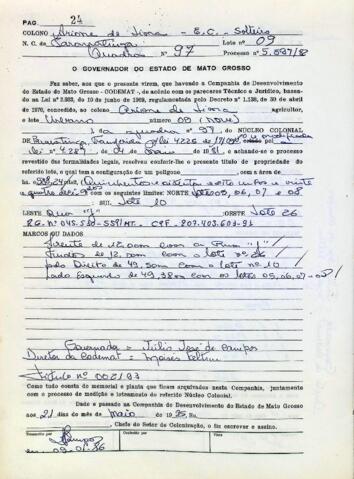 PAG. 24
COLONO Arione de Lima - E.C. - Solteiro
N. C. de Paranatinga Lote nº 09
Quadra nº 97 Processo nº 5.597/82
O GOVERNADOR DO ESTADO DE MATO GROSSO
Faz saber, aos que a presente virem, que havendo a Companhia de Desenvolvimento
do Estado de Mato Grosso - CODEMAT -, de acôrdo com os pareceres Técnico e Jurídico, basea-
dos na Lei nº de 10 de junho de 1969, regulamentada pelo Decreto nº 1.138, de 30 de abril
de 1970, concedido, ao colono Arione de Lima agricultor,
o lote Urbano número 09 (nove)
da quadra nº 97, do NÚCLEO COLONIAL
de Paranatinga, Lei 4226 de criado pela
lei nº 4287 de 04 de 1981, e achando-se o processo
revestido das formalidades legais, resolveu conferir-lhe o presente título de propriedade
do referido lote, o qual tem a configuração de um polígono com a área de
e vinte
e quatro com os seguintes limites: NORTE lotes 05, 06, 07 e 08
SUL lote 10
LESTE Rua "J" OESTE lote 26
R.G. nº 045.580-SSP/MT. - CPF. 207.403.601-91
MARCOS OU DADOS
Frente de 12,00m com a Rua "J"
Fundos de 12,00m com o lote nº 26
lado Direito de 49,50m com o lote nº 10
lado Esquerdo de 49,38m com os lotes 05, 06, 07 e 08
Governador = Júlio José de Campos
Diretor da Codemat = Moisés Feltrin
Título nº 002193
Como tudo consta do memorial e planta que ficam arquivados nesta Companhia, juntamente
com o processo de medição e loteamento do referido Núcleo Colonial.
Dado e passado na Companhia de Desenvolvimento do Estado de Mato Grosso
aos 21 dias do mês de Maio de 1985. Eu
Chefe do Setor de Colonização, o fiz escrever e assino.
Transcrito por
Conferido por
Visto
em 09-01-86